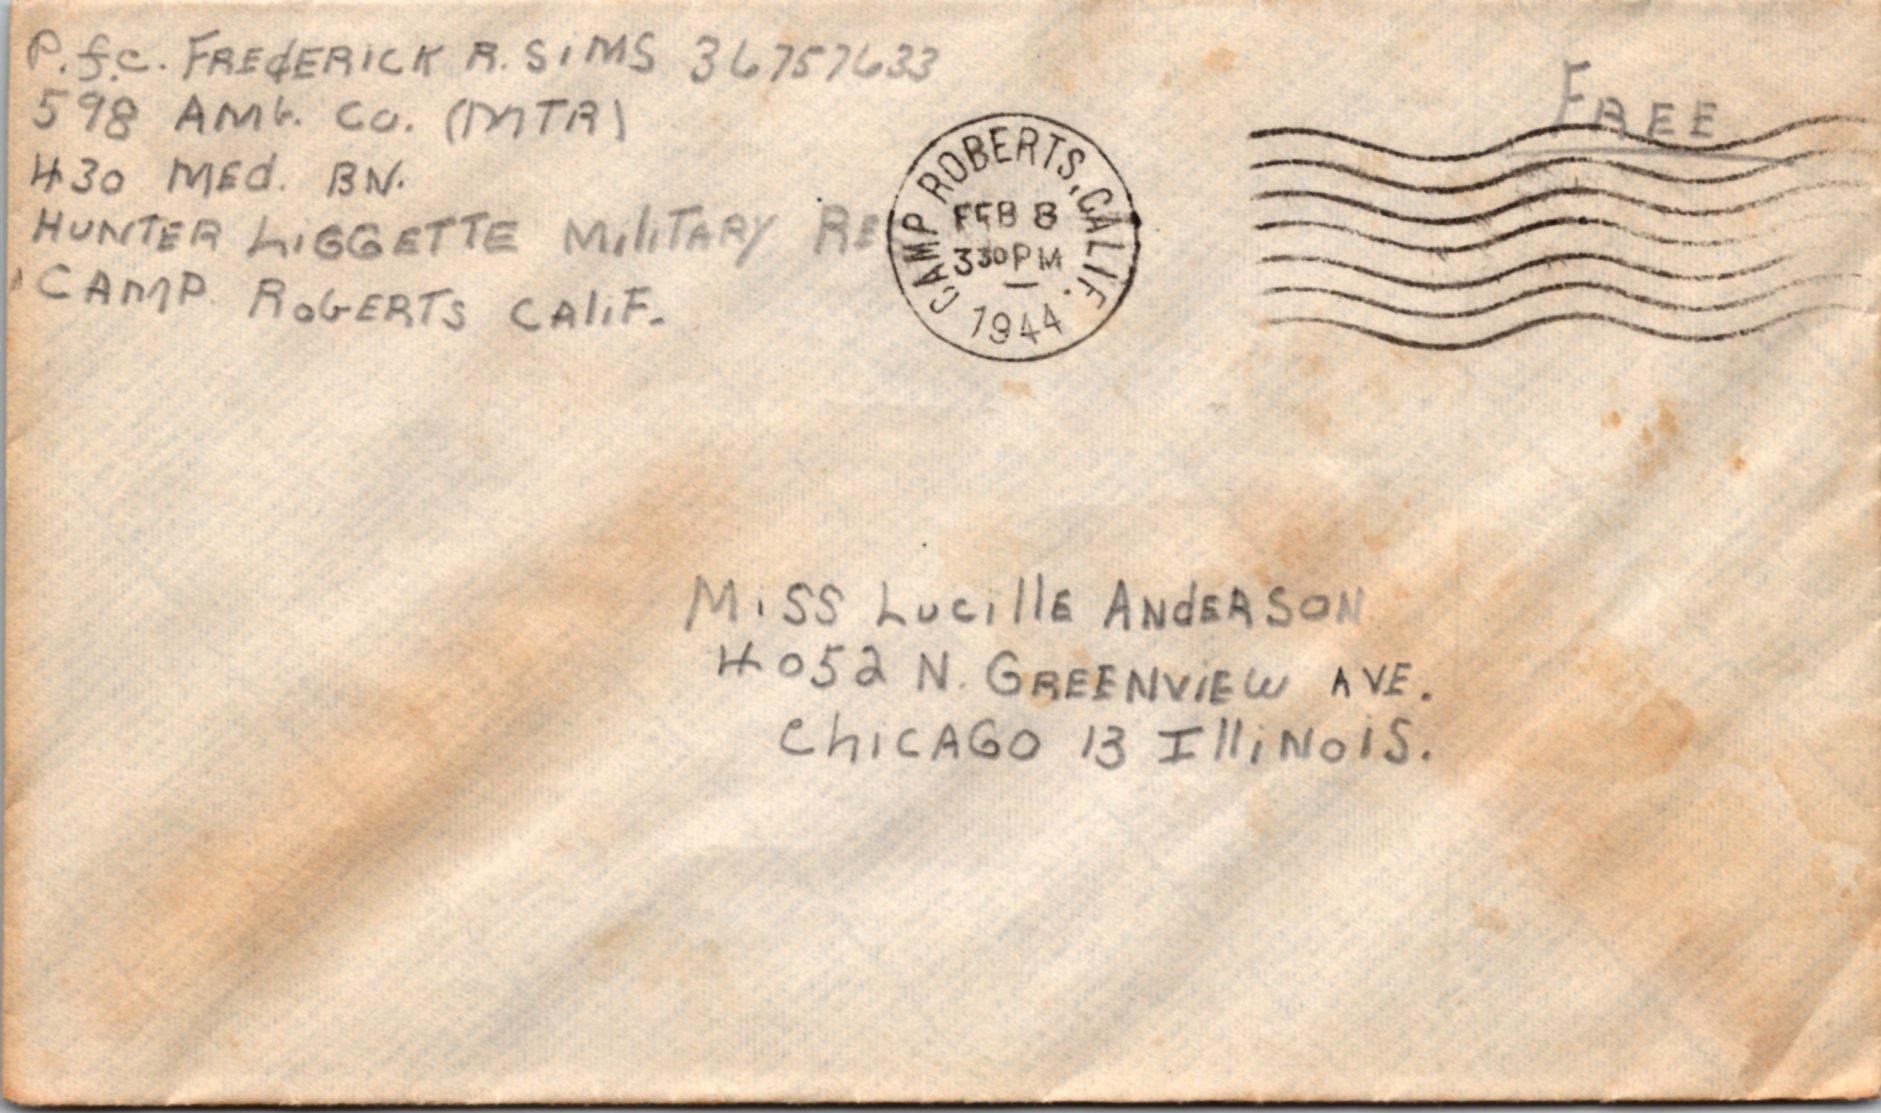 P.f.c. FREdERICK R. SiMS 36757633
598 AMb. Co. (MTR)
430 MEd. BN.
HUNTER LiGGETTE MiliTARY RE
CAMP RobERTS CAliF.
CAMP ROBERTS, CALIF.
FEB 8
330PM
1944
FREE
MiSS LucillE ANdERSON
4052 N. GREENViEW AVE.
ChiCAGO 13 IlliNoiS.